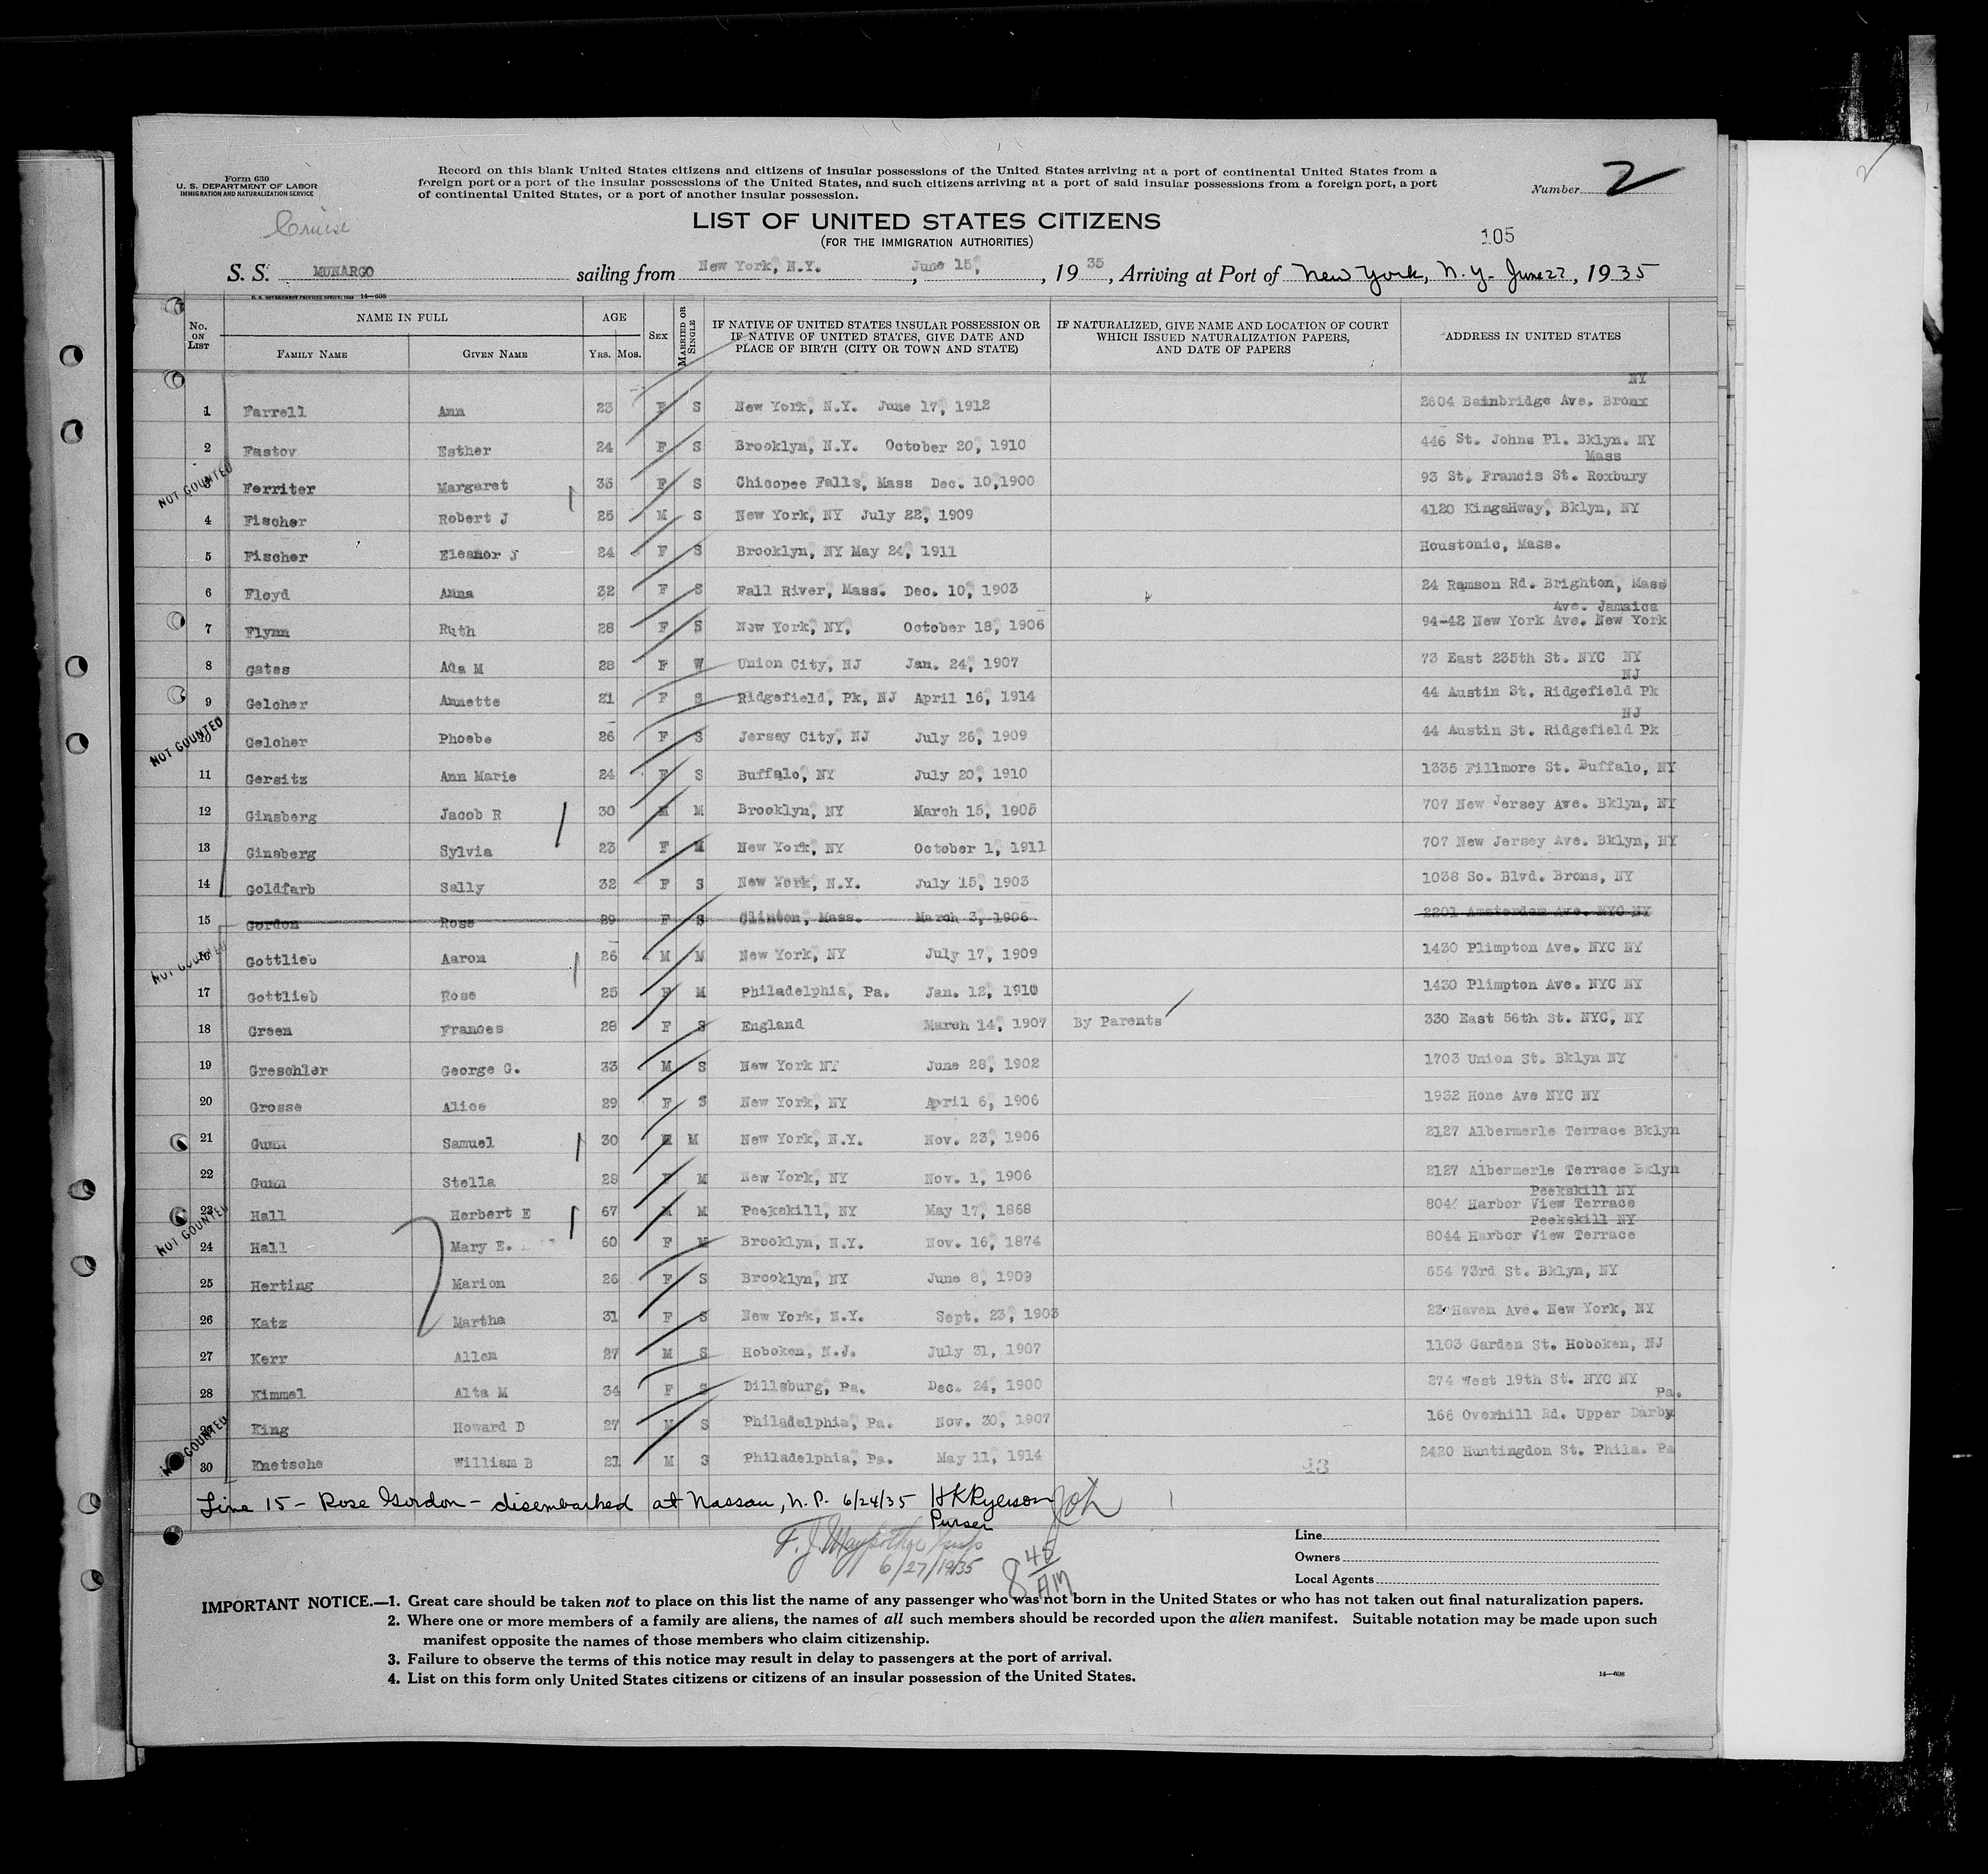 Form 630
U. S. DEPARTMENT OF LABOR
IMMIGRATION AND NATURALIZATION SERVICE
Record on this blank United States citizens and citizens of insular possessions of the United States arriving at a port of continental United States from a
foreign port or a port of the insular possessions of the United States, and such citizens arriving at a port of said insular possessions from a foreign port, a port
of continental United States, or a port of another insular possession.
Number 2
Cruise
LIST OF UNITED STATES CITIZENS
(FOR THE IMMIGRATION AUTHORITIES)
105
S. S. MUNARGO sailing from New York, N.Y. , June 15, , 19 35 , Arriving at Port of New York, N.Y- June 27, 1935
U. S. GOVERNMENT PRINTING OFFICE: 14—608
No. ON LIST NAME IN FULL FAMILY NAME GIVEN NAME AGE YRS. MOS. SEX MARRIED OR SINGLE IF NATIVE OF UNITED STATES INSULAR POSSESSION OR IF NATIVE OF UNITED STATES, GIVE DATE AND PLACE OF BIRTH (CITY OR TOWN AND STATE) IF NATURALIZED, GIVE NAME AND LOCATION OF COURT WHICH ISSUED NATURALIZATION PAPERS, AND DATE OF PAPERS ADDRESS IN UNITED STATES
NY
1 Farrell Ann 23 F S New York, N.Y. June 17, 1912 2604 Bainbridge Ave. Bronx
2 Fastov Esther 24 F S Brooklyn, N.Y. October 20, 1910 446 St. Johns Pl. Bklyn. NY
Mass
NOT COUNTED
3 Ferriter Margaret 35 F S Chicopee Falls, Mass Dec. 10,1900 93 St. Francis St. Roxbury
4 Fischer Robert J 25 M S New York, NY July 22, 1909 4120 KingsHway, Bklyn, NY
5 Fischer Eleanor J 24 F S Brooklyn, NY May 24, 1911 Houstonic, Mass.
6 Floyd Anna 32 F S Fall River, Mass. Dec. 10, 1903 24 Ramson Rd. Brighton, Mass
Ave. Jamaica
7 Flynn Ruth 28 F S New York, NY, October 18, 1906 94-42 New York Ave. New York
8 Gates Ada M 28 F W Union City, NJ Jan. 24, 1907 73 East 235th St. NYC NY
NJ
9 Gelcher Annette 21 F S Ridgefield, Pk, NJ April 16, 1914 44 Austin St. Ridgefield Pk
NJ
NOT COUNTED
10 Gelcher Phoebe 26 F S Jersey City, NJ July 26, 1909 44 Austin St. Ridgefield Pk
11 Gersitz Ann Marie 24 F S Buffalo, NY July 20, 1910 1335 Fillmore St. Buffalo, NY
12 Ginsberg Jacob R 30 M M Brooklyn, NY March 15, 1905 707 New Jersey Ave. Bklyn, NY
13 Ginsberg Sylvia 23 F M New York, NY October 1, 1911 707 New Jersey Ave. Bklyn, NY
14 Goldfarb Sally 32 F S New York, N.Y. July 15, 1903 1038 So. Blvd. Brons, NY
15 Gordon Rose 29 F S Clinton, Mass. March 3, 1906 2201 Amsterdam Ave. NYC NY
NOT COUNTED
16 Gottlieb Aaron 26 M M New York, NY July 17, 1909 1430 Plimpton Ave. NYC NY
17 Gottlieb Rose 25 F M Philadelphia, Pa. Jan. 12, 1910 1430 Plimpton Ave. NYC NY
18 Green Frances 28 F S England March 14, 1907 By Parents 330 East 56th St. NYC, NY
19 Greschler George G. 33 M S New York NY June 28, 1902 1703 Union St. Bklyn NY
20 Grosse Alice 29 F S New York, NY April 6, 1906 1932 Hone Ave NYC NY
21 Gunn Samuel 30 M M New York, N.Y. Nov. 23, 1906 2127 Albermerle Terrace Bklyn
22 Gunn Stella 28 F M New York, NY Nov. 1, 1906 2127 Albermerle Terrace Bklyn
Peekskill NY
NOT COUNTED
23 Hall Herbert E 67 M M Peekskill, NY May 17, 1868 8044 Harbor View Terrace
Peekskill NY
24 Hall Mary E. 60 F M Brooklyn, N.Y. Nov. 16, 1874 8044 Harbor View Terrace
25 Herting Marion 26 F S Brooklyn, NY June 8, 1909 654 73rd St. Bklyn, NY
26 Katz Martha 31 F S New York, N.Y. Sept. 23, 1903 23 Haven Ave. New York, NY
27 Kerr Allen 27 M S Hoboken, N.J. July 31, 1907 1103 Garden St. Hoboken, NJ
28 Kimmel Alta M 34 F S Dillsburg, Pa. Dec. 24, 1900 274 West 19th St. NYC NY
Pa.
29 King Howard D 27 M S Philadelphia, Pa. Nov. 30, 1907 166 Overhill Rd. Upper Darby
NOT COUNTED
30 Knetsche William B 21 M S Philadelphia, Pa. May 11, 1914 2420 Huntingdon St. Phila. Pa
43
Line 15 - Rose Gordon - disembarked at Nassau, N.P. 6/24/35 H K Ryerson
Purser
6/27/1935
8 45 AM
Line
Owners
Local Agents
IMPORTANT NOTICE.—1. Great care should be taken not to place on this list the name of any passenger who was not born in the United States or who has not taken out final naturalization papers.
2. Where one or more members of a family are aliens, the names of all such members should be recorded upon the alien manifest. Suitable notation may be made upon such
manifest opposite the names of those members who claim citizenship.
3. Failure to observe the terms of this notice may result in delay to passengers at the port of arrival.
4. List on this form only United States citizens or citizens of an insular possession of the United States.
14—608